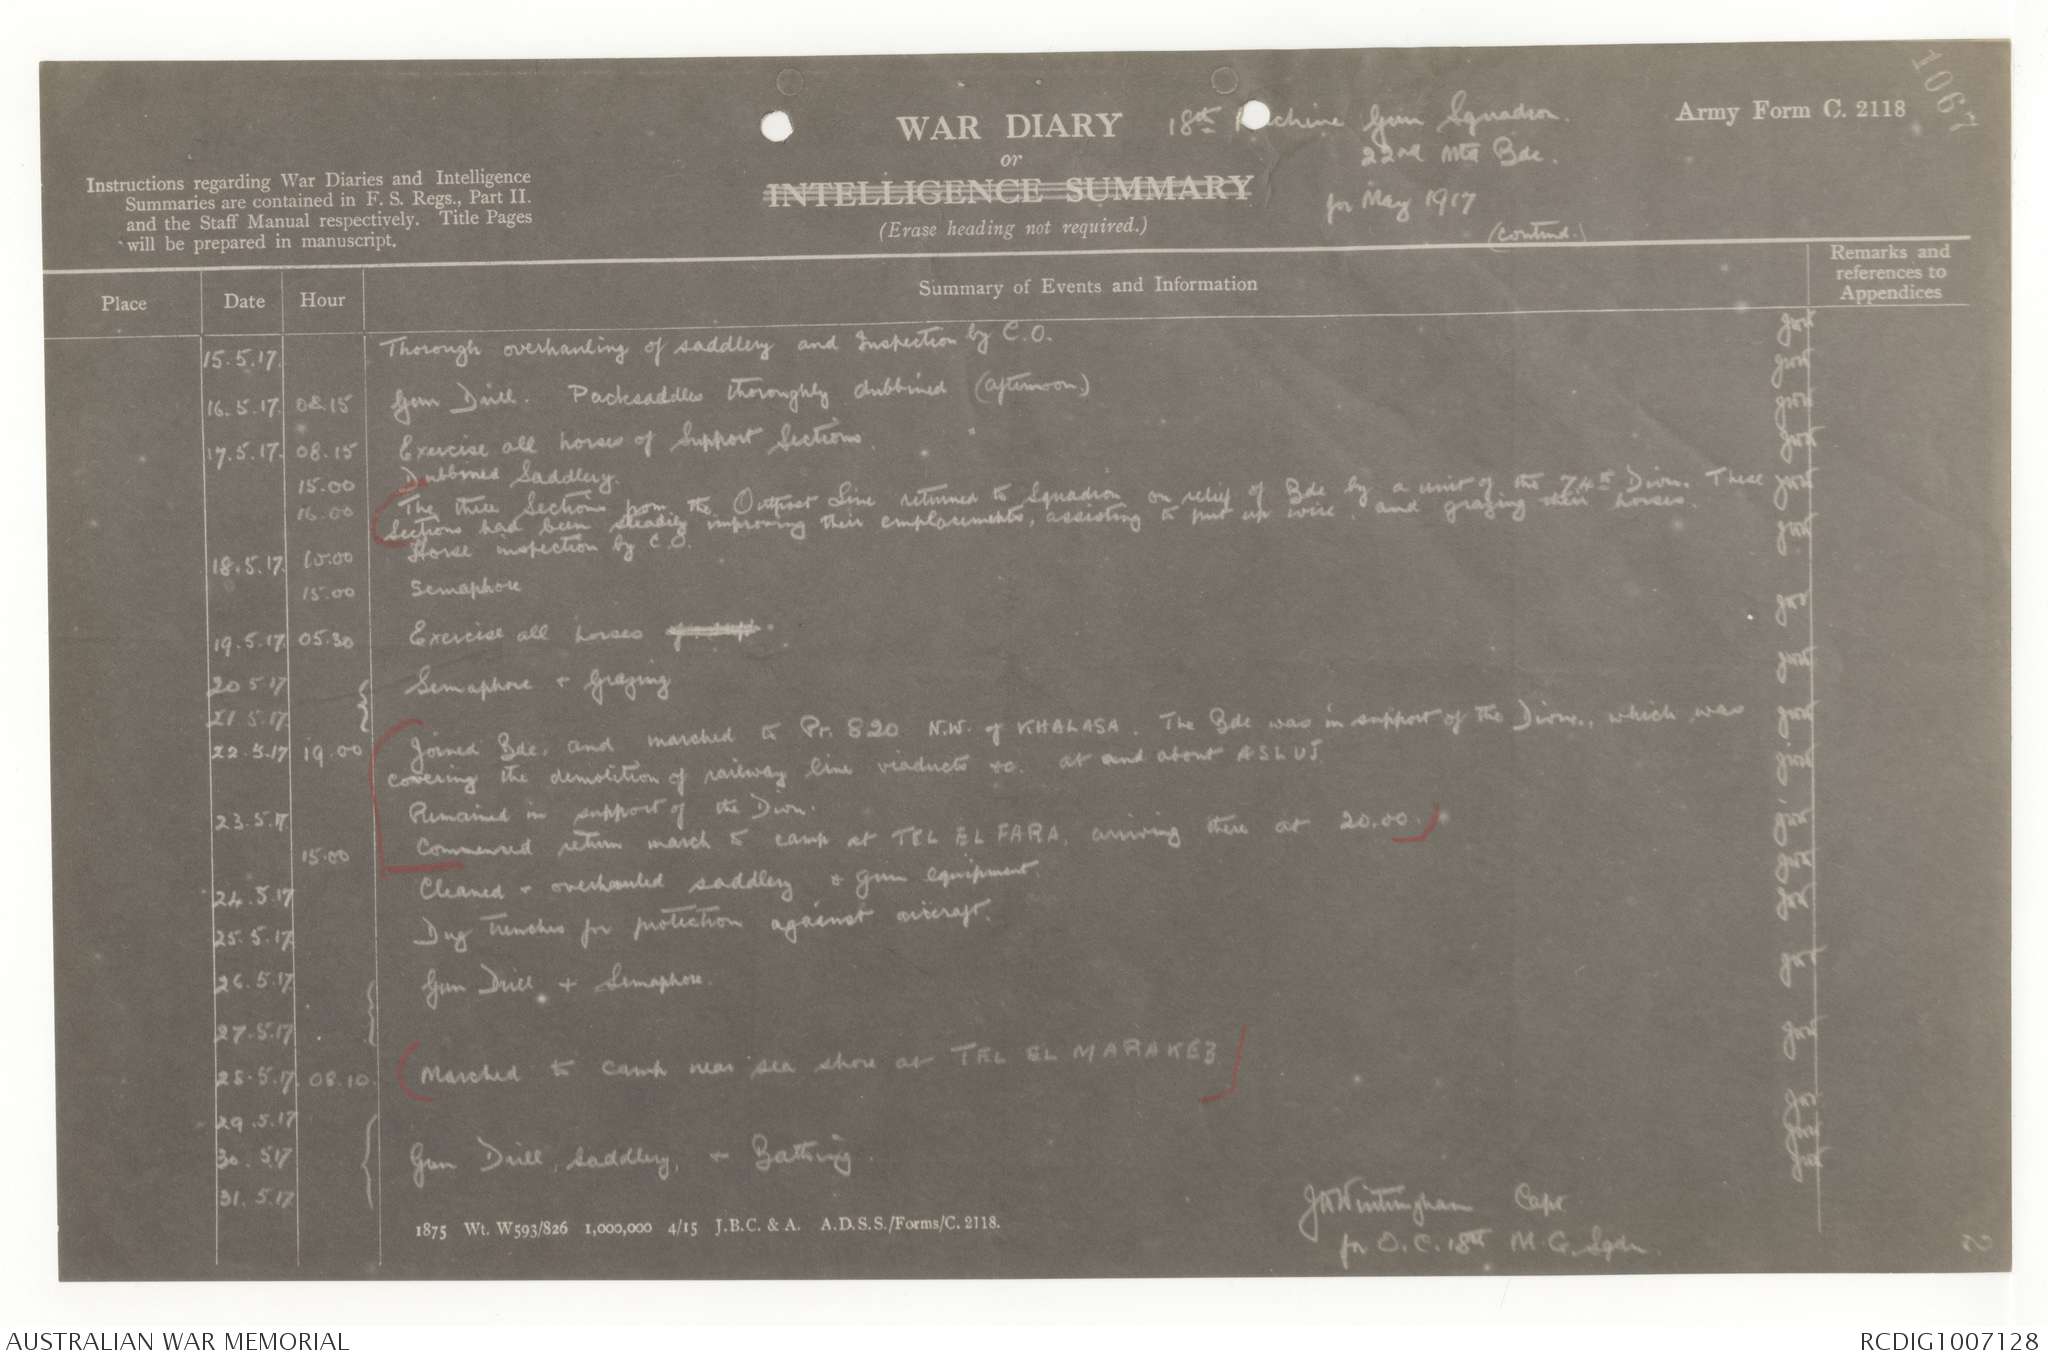 1067
WAR DIARY
or
INTELLIGENCE SUMMARY
(Erase heading not required.)
18th Machine Gun Squadron.
22nd Mtd Bde.
for May 1917
(contind.)
Army Form C. 2118
Instructions regarding War Diaries and Intelligence
Summaries are contained in F. S. Regs., Part II.
and the Staff Manual respectively. Title Pages
will be prepared in manuscript.
Place Date Hour Summary of Events and Information Remarks and references to Appendices
15.5.17. Thorough overhauling of saddlery and Inspection by C.O.
16.5.17. 08.15 Gun Drill. Packsaddles thoroughly dubbined (afternoon)
17.5.17. 08.15 Exercise all horses of Support Sections.
15.00 Dubbined Saddlery.
16.00 The three Sections from the Outpost Line returned to Squadron on relief of Bde by a unit of the 74th Divn. These
Sections had been steadily improving their emplacements, assisting to put up wire, and grazing their horses.
18.5.17. 10.00 Horse inspection by C.O.
15.00 Semaphore
19.5.17. 05.30 Exercise all horses
20 5 17 Semaphore + Grazing
21.5.17.
22.5.17 19.00 Joined Bde. and marched to Pt. 820 N.W. of KHALASA. The Bde was in support of the Divn., which was
covering the demolition of railway line viaducts &c. at and about ASLUJ
23.5.17. Remained in support of the Divn.
15.00 Commenced return march to camp at TEL EL FARA, arriving there at 20.00.
24.5.17 Cleaned + overhauled saddlery & gun equipment.
25.5.17. Dug trenches for protection against aircraft.
26.5.17 Gun Drill + Semaphore.
27.5.17
28.5.17. 08.10. Marched to camp near sea shore at TEL EL MARAKEZ
29.5.17
30.5.17 Gun Drill, saddlery, + Bathing.
31.5.17
1875 Wt. W593/826 1,000,000 4/15 J.B.C. & A. A.D.S.S./Forms/C. 2118.
JWWintringham Capt
for O.C. 18th M.G. Sqdn.
AUSTRALIAN WAR MEMORIAL
RCDIG1007128